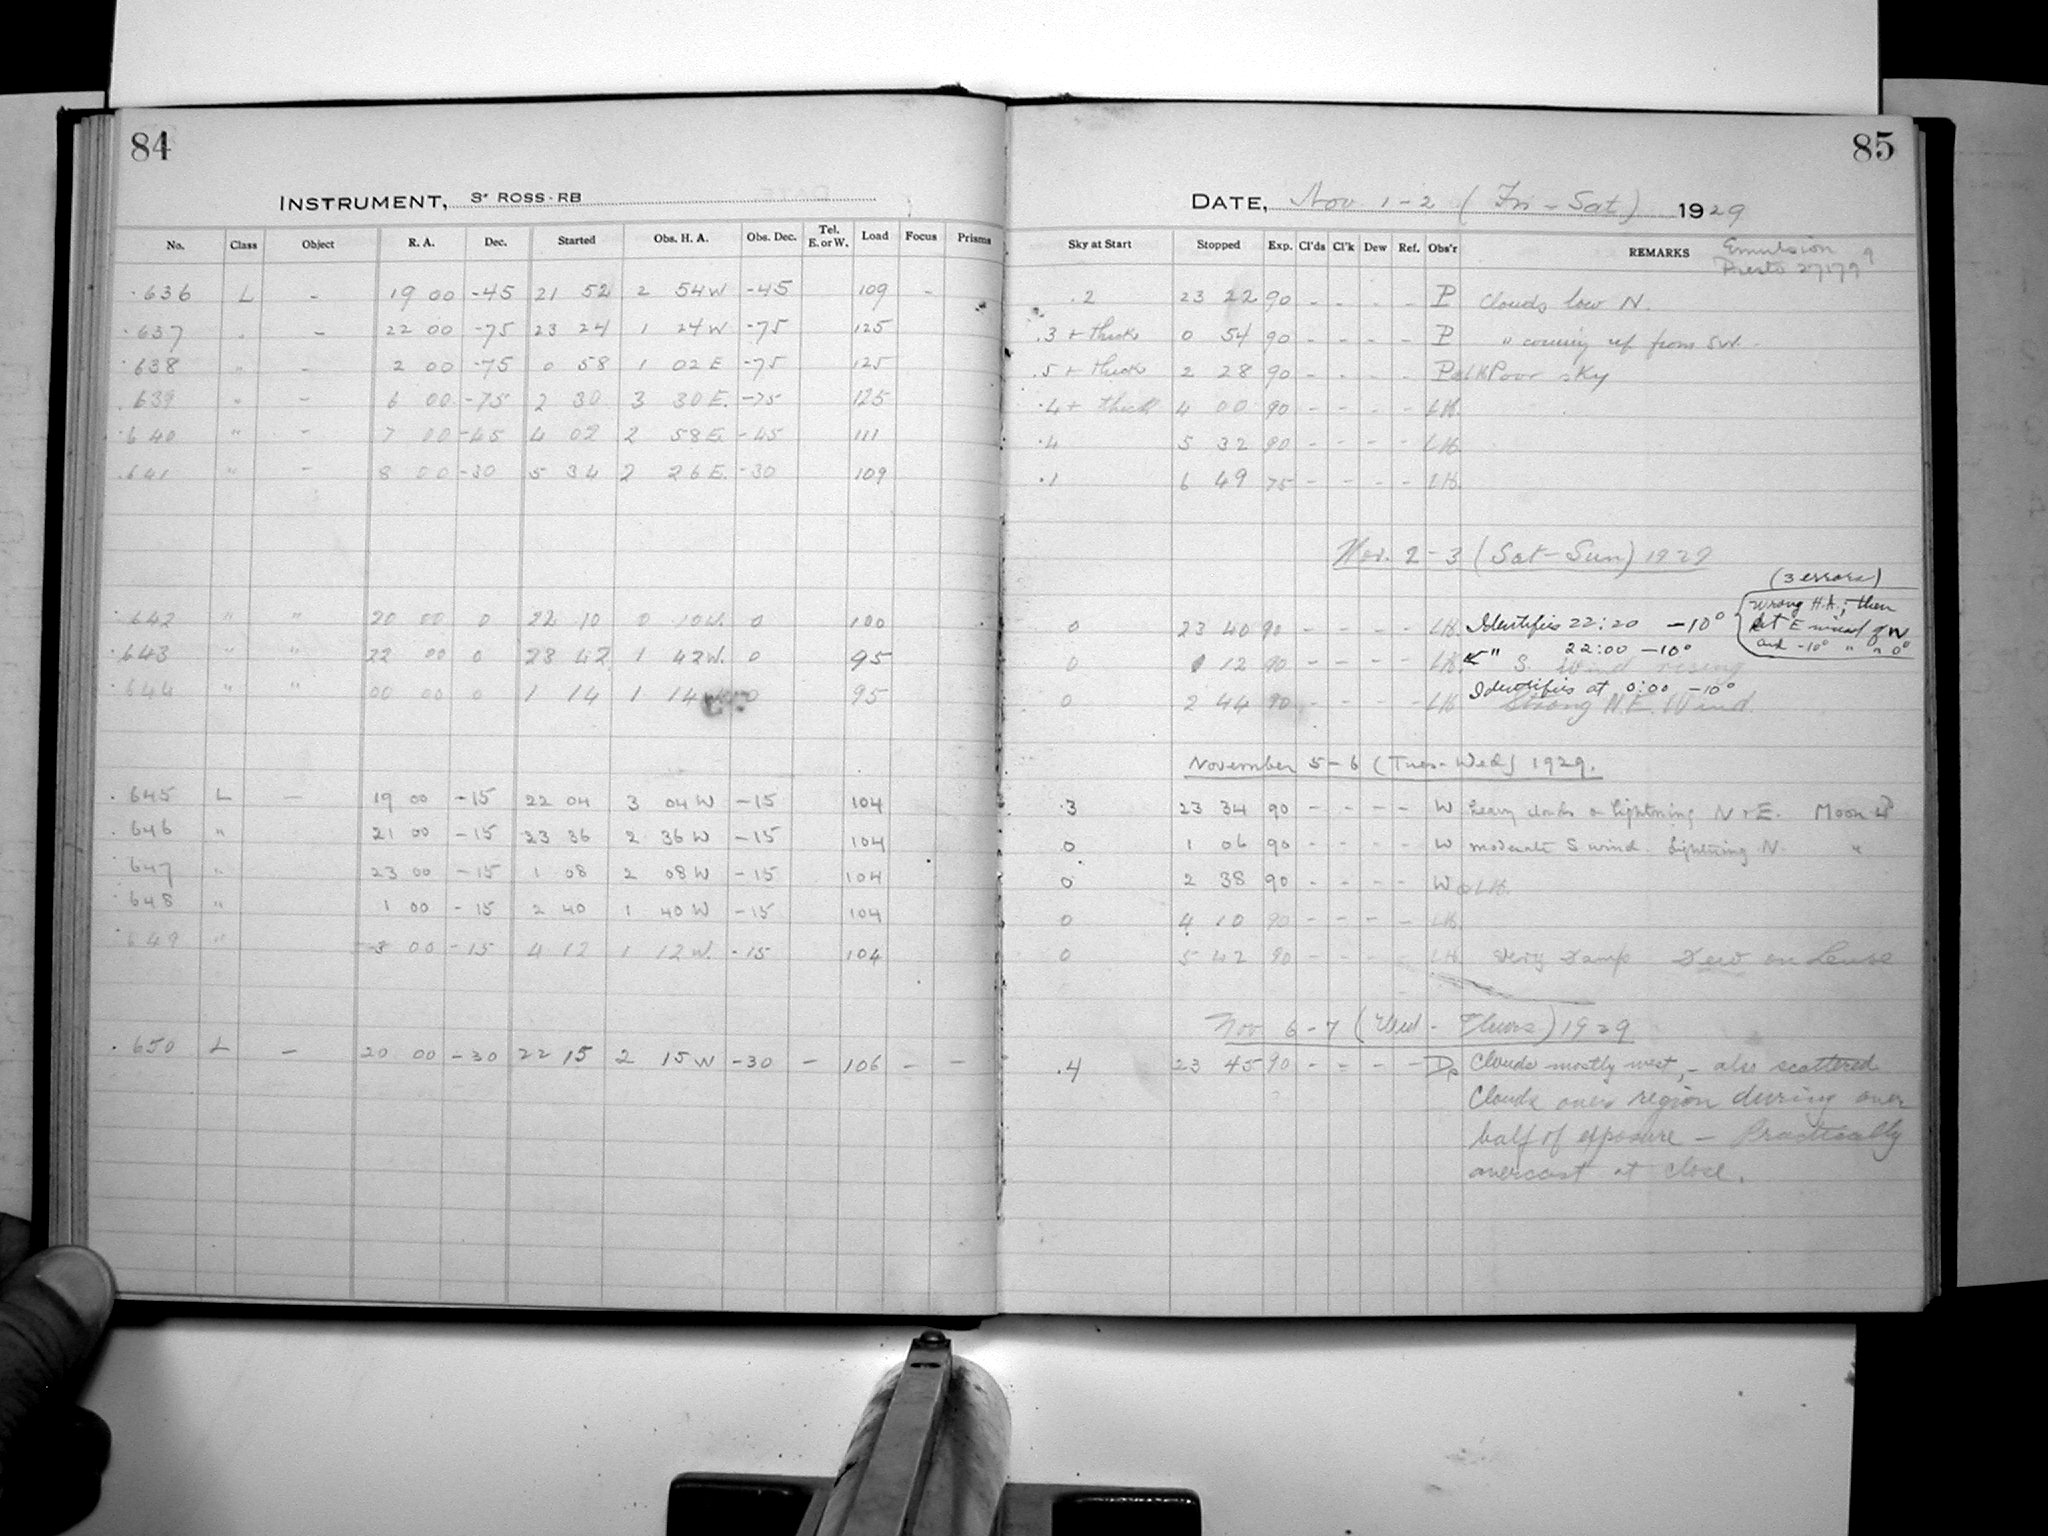 84
INSTRUMENT, 3" ROSS-RB
No. Class Object R. A. Dec. Started Obs. H. A. Obs. Dec. Tel. E. or W. Load Focus Prisms
636 L - 19 00 -45 21 52 2 54W -45 109 -
637 " - 22 00 -75 23 24 1 24W -75 125
638 " - 2 00 -75 0 58 1 02 E -75 125
639 " - 6 00 -75 2 30 3 30E. -75 125
640 " - 7 00 -45 4 02 2 58E. -45 111
641 " - 8 00 -30 5 34 2 26E. -30 109
642 " " 20 00 0 22 10 0 10W. 0 100
643 " " 22 00 0 23 42 1 42W. 0 95
644 " " 00 00 0 1 14 1 14 0 95
645 L - 19 00 -15 22 04 3 04 W -15 104
646 " 21 00 -15 23 36 2 36 W -15 104
647 " 23 00 -15 1 08 2 08 W -15 104
648 " 1 00 -15 2 40 1 40 W -15 104
649 " 3 00 -15 4 12 1 12 W. -15 104
650 L - 20 00 -30 22 15 2 15 W -30 - 106 - -
85
DATE, Nov 1-2 (Fri-Sat) 1929
Sky at Start Stopped Exp. Cl'ds Cl'k Dew Ref. Obs'r REMARKS Emulsion
Presto 27179
.2 23 22 90 - - - - P Clouds low N.
.3 + thick 0 54 90 - - - - P " coming up from SW.
.5 + thick 2 28 90 - - - - P Poor sky
.4 + thick 4 00 90 - - - - LH.
.4 5 32 90 - - - - LH.
.1 6 49 75 - - - - LH.
Nov. 2-3 (Sat-Sun) 1929
(3 errors)
wrong H.A.; then
set E instead of W
and -10° " " 0°
0 23 40 90 - - - - LH. Identifies 22:20 -10°
" 22:00 -10°
0 1 12 90 - - - - LH. S. Wind rising
Identifies at 0:00 -10°
0 2 44 90 - - - - LH Strong N.E. Wind.
November 5-6 (Tues-Wed) 1929.
.3 23 34 90 - - - - W heavy clouds & lightning N & E. Moon
0 1 06 90 - - - - W moderate S wind. Lightning N. "
0 2 38 90 - - - - W & LH.
0 4 10 90 - - - - LH.
0 5 42 90 - - - - LH. Very Damp Dew on Lense
Nov 6-7 (Wed - Thurs) 1929
.4 23 45 90 - - - - Clouds mostly west, - also scattered
Clouds over region during over
half of exposure - Practically
overcast at close.